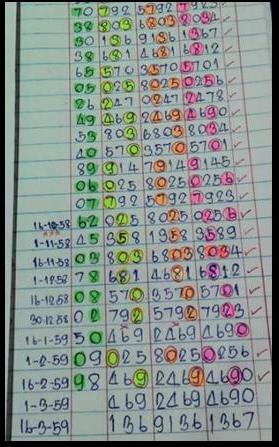 70 792 5792 7923
38 803 6803 8034
30 136 9136 1367
38 681 4681 6812
65 570 3570 5701
05 025 8025 0256
86 247 0247 2478
49 469 2469 4690
53 803 6803 8034
40 570 3570 5701
89 914 7914 9145
06 025 8025 0256
07 792 5792 7923
16-10-58 62 025 8025 0256
1-11-58 45 358 1358 3589
16-11-58 03 803 6803 8034
1-12-58 78 681 4681 6812
16-12-58 08 570 3570 5701
30-12-58 02 792 5792 7923
16-1-59 50 469 2469 4690
1-2-59 09 025 8025 0256
16-2-59 98 469 2469 4690
1-3-59 469 2469 4690
16-3-59 136 9136 1367